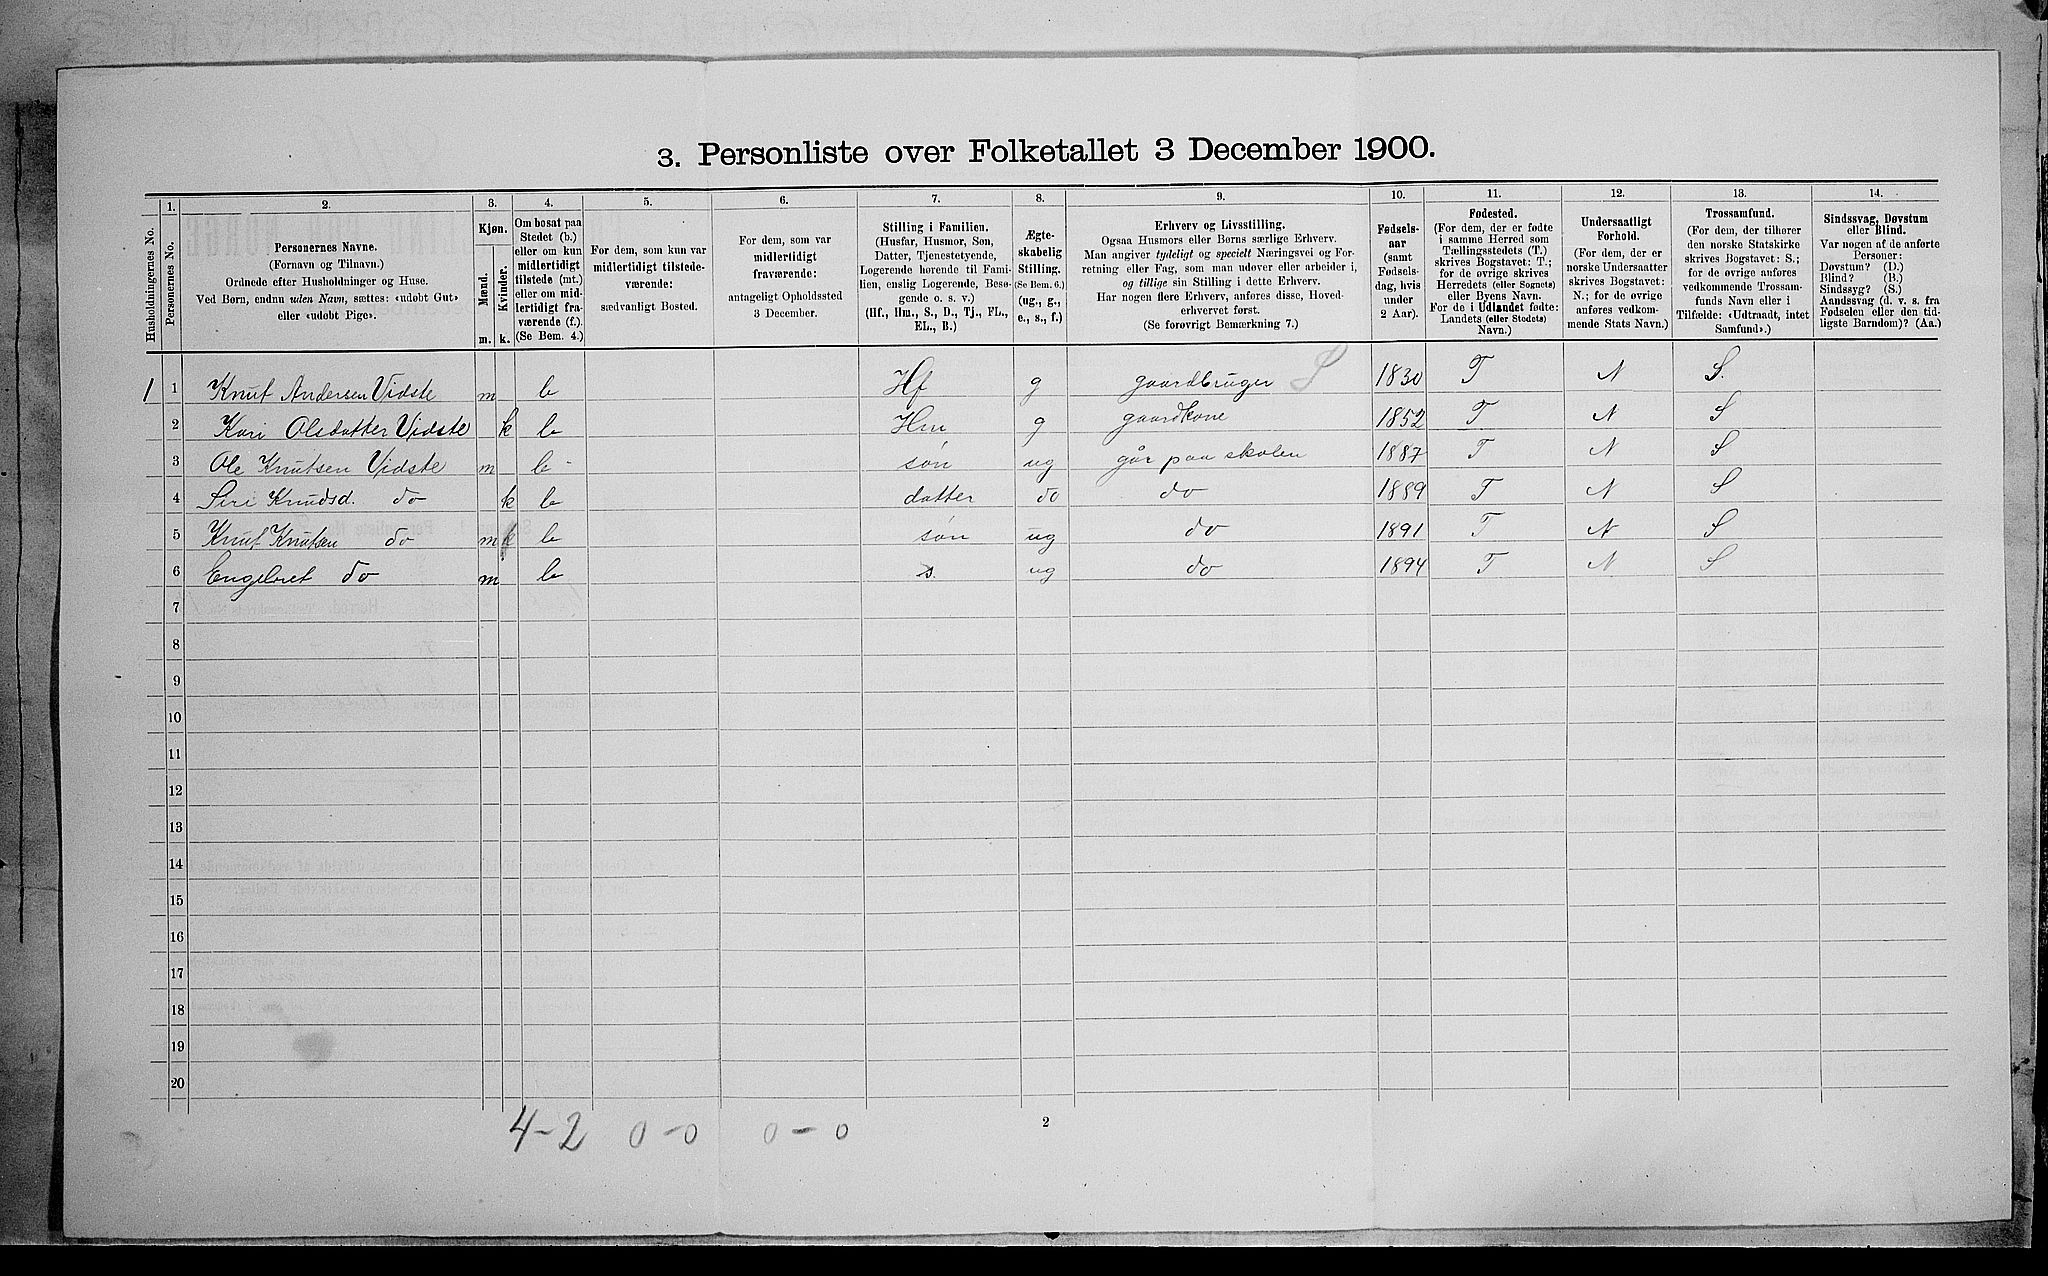 3. Personliste over Folketallet 3 December 1900.
1. 2. 3. 4. 5. 6. 7. 8. 9. 10. 11. 12. 13. 14.
Husholdningernes No.
Personernes No.
Personernes Navne.
(Fornavn og Tilnavn.)
Ordnede efter Husholdninger og Huse.
Ved Børn, endnu uden Navn, sættes: «udobt Gut»
eller «udobt Pige».
Kjøn.
Mænd.
Kvinder.
m. k.
Om bosat paa
Stedet (b.)
eller om kun
midlertidigt
tilstede (mt.)
eller om mid-
lertidigt fra-
værende (f.)
(Se Bem. 4.)
For dem, som kun var
midlertidigt tilstede-
værende:
sædvanligt Bosted.
For dem, som var
midlertidigt
fraværende:
antageligt Opholdssted
3 December.
Stilling i Familien.
(Husfar, Husmor, Søn,
Datter, Tjenestetyende,
Logerende hørende til Fami-
lien, enslig Logerende, Besø-
gende o. s. v.)
(Hf., Hm., S., D., Tj., FL.,
EL., B.)
Ægte-
skabelig
Stilling.
(Se Bem. 6.)
(ug., g.,
e., s., f.)
Erhverv og Livsstilling.
Ogsaa Husmors eller Børns særlige Erhverv.
Man angiver tydeligt og specielt Næringsvei og For-
retning eller Fag, som man udøver eller arbeider i,
og tillige sin Stilling i dette Erhverv.
Har nogen flere Erhverv, anføres disse, Hoved-
erhvervet først.
(Se forøvrigt Bemærkning 7.)
Fødsels-
aar
(samt
Fødsels-
dag, hvis
under
2 Aar).
Fødested.
(For dem, der er fødte
i samme Herred som
Tællingsstedets (T.)
skrives Bogstavet: T.;
for de øvrige skrives
Herredets (eller Sognets)
eller Byens Navn.
For de i Udlandet fødte:
Landets (eller Stedets)
Navn.)
Undersaatligt
Forhold.
(For dem, der er
norske Undersaatter
skrives Bogstavet:
N.; for de øvrige
anføres vedkom-
mende Stats Navn.)
Trossamfund.
(For dem, der tilhører
den norske Statskirke
skrives Bogstavet: S.;
for de øvrige anføres
vedkommende Trossam-
funds Navn eller i
Tilfælde: «Udtraadt, intet
Samfund».)
Sindssvag, Døvstum
eller Blind.
Var nogen af de anførte
Personer:
Døvstum? (D.)
Blind? (B.)
Sindssyg? (S.)
Aandssvag (d. v. s. fra
Fødselen eller den tid-
ligste Barndom)? (Aa.)
1 1 Knut Andersen Vidste m b Hf g gaardbruger S 1830 T N S.
2 Kari Olsdatter Vidste k b Hm g gaardkone 1852 T N S
3 Ole Knutsen Vidste m b søn ug går paa skolen 1887 T N S
4 Siri Knudsd. do k b datter do do 1889 T N S
5 Knut Knutsen do m k b søn ug do 1891 T N S
6 Engebret do m b s. ug do 1894 T N S
7
8
9
10
11
12
13
14
15
16
17
18
19
20
4-2 0-0 0-0
2